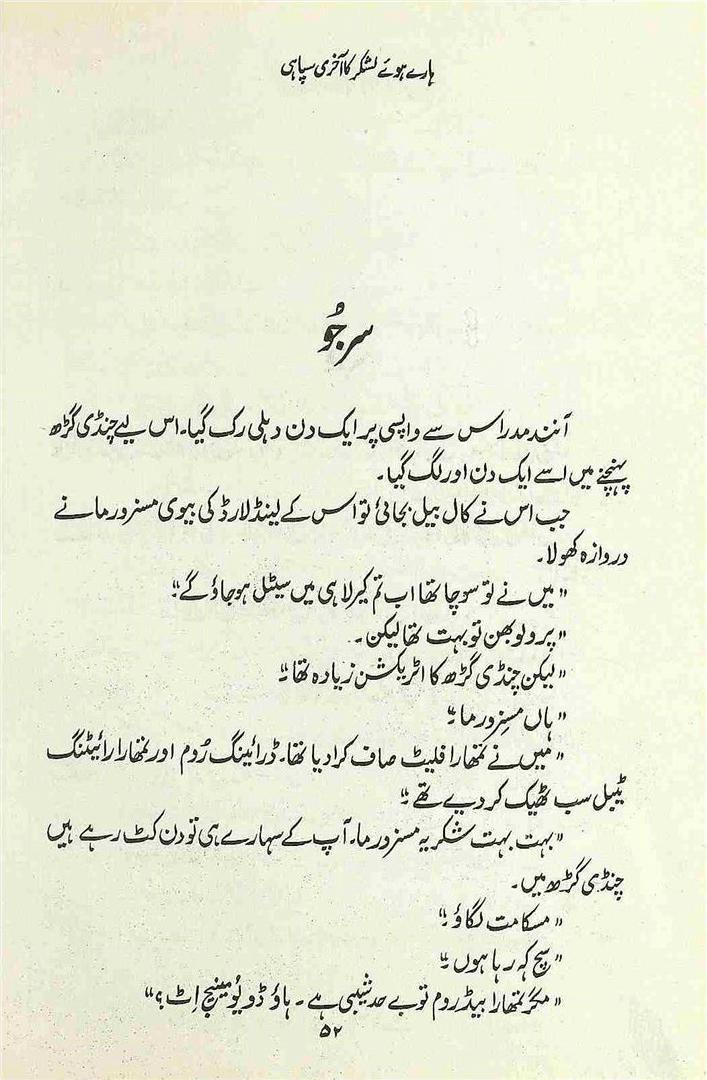 ہارے ہوئے لشکر کا آخری سپاہی
سرجُو
آنند مدراس سے واپسی پر ایک دن دہلی رک گیا۔ اس لیے چنڈی گڑھ
پہنچنے میں اسے ایک دن اور لگ گیا۔
جب اس نے کال بیل بجائی تو اس کے لینڈ لارڈ کی بیوی مسز ورما نے
دروازہ کھولا۔
"میں نے تو سوچا تھا اب تم کیرلا ہی میں سیٹل ہو جاؤ گے۔"
"پرولوبھن تو بہت تھا لیکن۔
"لیکن چنڈی گڑھ کا اٹریکشن زیادہ تھا۔"
"ہاں مسز ورما۔"
"میں نے تمھارا فلیٹ صاف کرا دیا تھا۔ ڈرائینگ رُوم اور تمھارا رائیٹنگ
ٹیبل سب ٹھیک کر دیے تھے۔"
"بہت بہت شکریہ مسز ورما۔ آپ کے سہارے ہی تو دن کٹ رہے ہیں
چنڈی گڑھ میں۔
"مسکا مت لگاؤ۔"
"سچ کہہ رہا ہوں۔"
"مگر تمھارا بیڈ روم تو بے حد شیبی ہے۔ ہاؤ ڈو یُو مینیج اِٹ؟"
۵۲